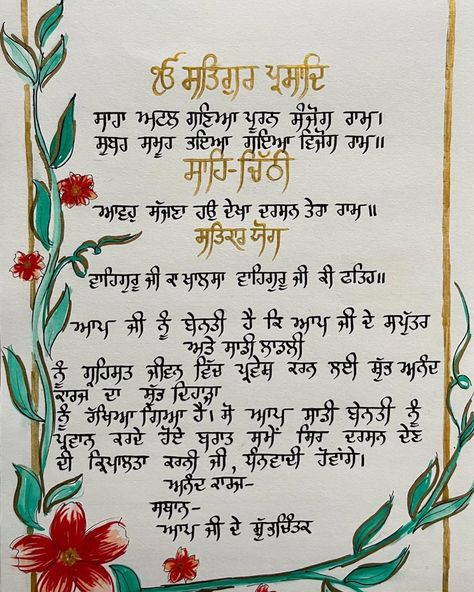 ੴ ਸਤਿਗੁਰ ਪ੍ਰਸਾਦਿ
ਸਾਹਾ ਅਟਲ ਗਣਿਆ ਪੂਰਨ ਸੰਜੋਗ ਰਾਮ।
ਸੁਖਰ ਸਮੂਹ ਤਇਆ ਗਇਆ ਵਿਜੋਗ ਰਾਮ॥
ਸਾਹਿ-ਚਿੱਠੀ
ਆਵਹੁ ਸੱਜਣਾ ਹਉ ਦੇਖਾ ਦਰਸਨ ਤੇਰਾ ਰਾਮ॥
ਸਤਿਕਾਰ ਯੋਗ
ਵਾਹਿਗੁਰੂ ਜੀ ਕਾ ਖਾਲਸਾ ਵਾਹਿਗੁਰੂ ਜੀ ਕੀ ਫਤਿਹ॥
ਆਪ ਜੀ ਨੂੰ ਬੇਨਤੀ ਹੈ ਕਿ ਆਪ ਜੀ ਦੇ ਸਪੁੱਤਰ
ਅਤੇ ਸਾਡੀ ਲਾਡਲੀ
ਨੂੰ ਗ੍ਰਹਿਸਤ ਜੀਵਨ ਵਿੱਚ ਪ੍ਰਵੇਸ਼ ਕਰਨ ਲਈ ਸ਼ੁੱਭ ਅਨੰਦ
ਕਾਰਜ ਦਾ ਸ਼ੁੱਭ ਦਿਹਾੜਾ
ਨੂੰ ਰੱਖਿਆ ਗਿਆ ਹੈ। ਸੋ ਆਪ ਸਾਡੀ ਬੇਨਤੀ ਨੂੰ
ਪ੍ਰਵਾਨ ਕਰਦੇ ਹੋਏ ਬਰਾਤ ਸਮੇਂ ਸਿਰ ਦਰਸਨ ਦੇਣ
ਦੀ ਕ੍ਰਿਪਾਲਤਾ ਕਰਨੀ ਜੀ, ਧੰਨਵਾਦੀ ਹੋਵਾਂਗੇ।
ਅਨੰਦ ਕਾਰਜ-
ਸਥਾਨ-
ਆਪ ਜੀ ਦੇ ਸ਼ੁੱਭਚਿੰਤਕ